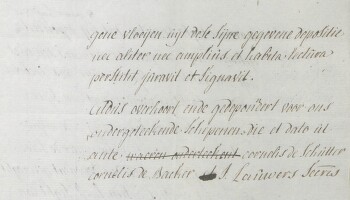 gene vloeijen uyt dese sijne gegevene depositie
nec aliter nec amplius et habita lectura
perstitit juravit et signavit.
Aldus overhoort ende gedeponeert voor ons
ondergeteekende Schepenen, die et dato ut
ante waeren onderteekent cornelis de Schutter
cornelis de Backer et J. Leeuwers